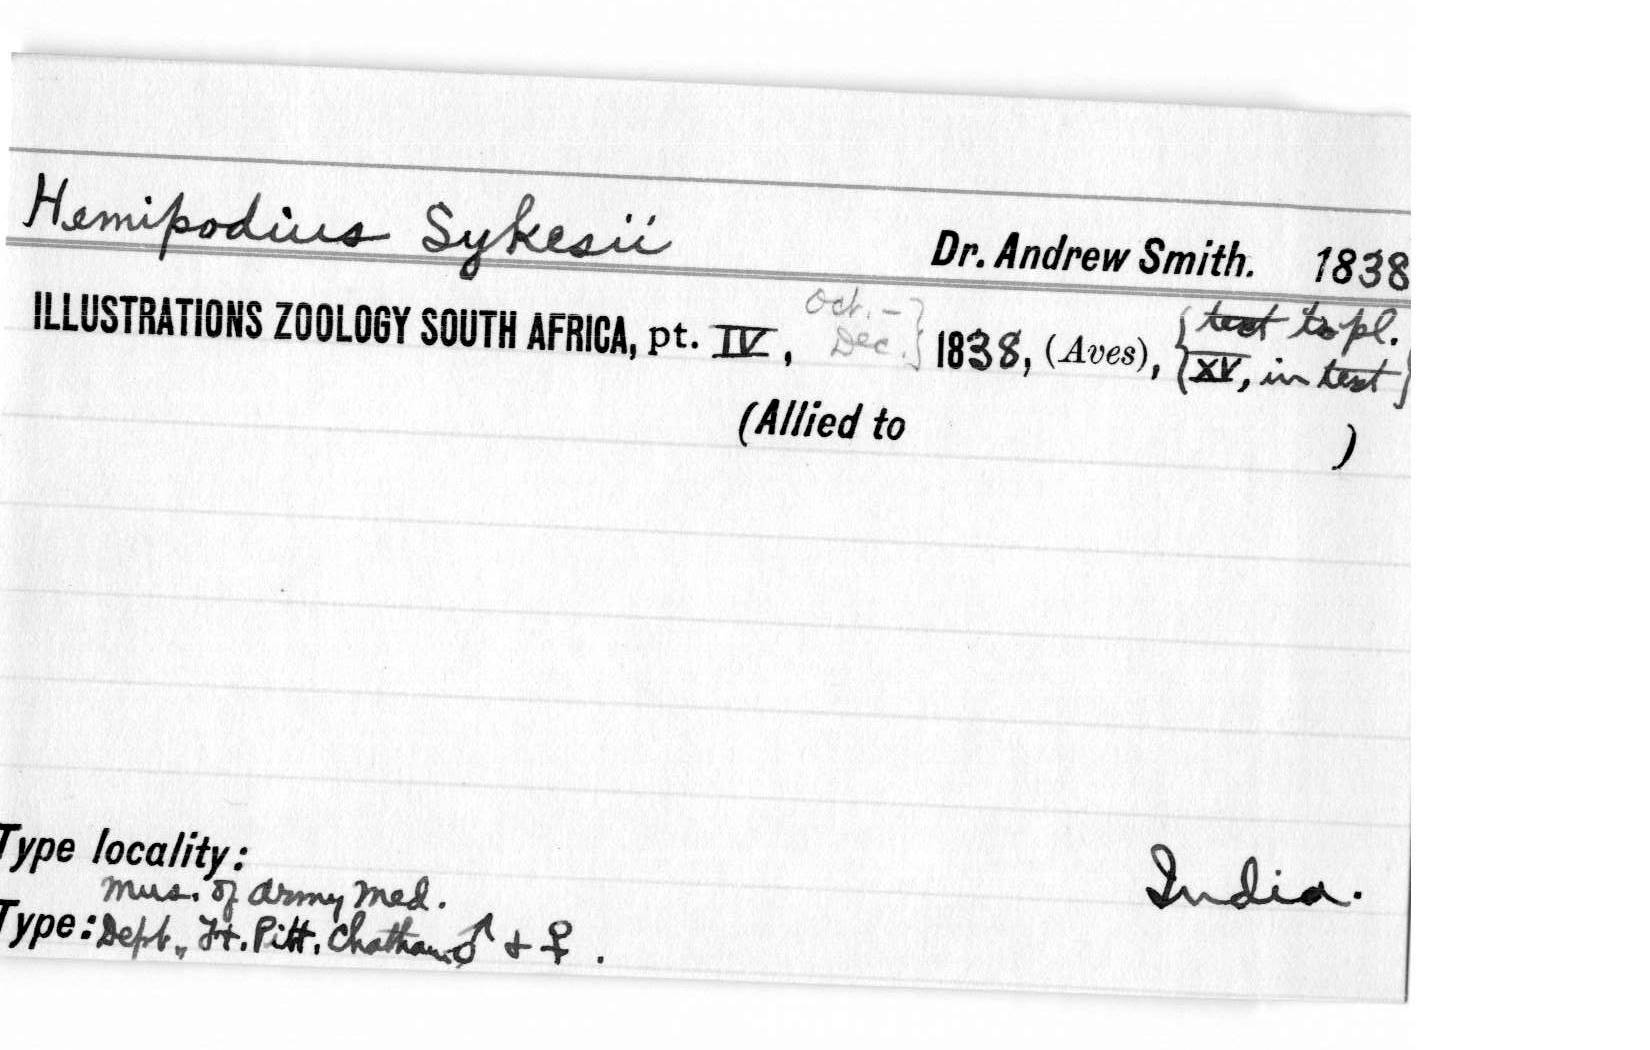 Hemipodius Sykesii
Dr. Andrew Smith. 1838
ILLUSTRATIONS ZOOLOGY SOUTH AFRICA, pt. IV, Oct. - Dec.} 1838, (Aves), {text to pl. XV, in text}
(Allied to )
Type locality: India.
Mus. of Army Med.
Type: Dept., Ft. Pitt, Chatham ♂ + ♀.